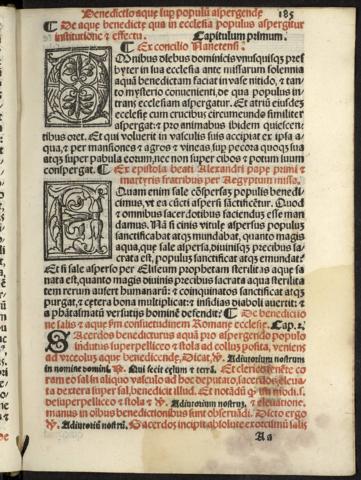 Benedictio aque sup populū aspergende 185
De aque benedicte qua in ecclesia populus aspergitur
institutione & effectu. Capitulum primum.
Ex concilio Nanetensi.
Omnibus diebus dominicis vnusquisqs pres
byter in sua ecclesia ante missarum solennia
aquā benedictam faciat in vase nitido, & tan
to mysterio conuenienti, de qua populus in-
trans ecclesiam aspergatur. Et atriū eiusdez
ecclesie cum crucibus circumeundo similiter
aspergat: & pro animabus ibidem quiescen-
tibus oret. Et qui voluerit in vasculis suis accipiat ex ipsa a-
qua, & per mansiones & agros & vineas, sup pecora quoqz sua
atqz super pabula eorum, nec non super cibos & potum suum
conspergat. Ex epistola beati Alexandri pape primi &
martyris fratribus per Aegyptum missa.
Aquam enim sale cōspersaz populis benedi-
cimus, vt ea cūcti aspersi sāctificētur. Quod
& omnibus sacerdotibus faciendus esse man
damus. Nā si cinis vitule aspersus populuz
sanctificabat atqz mundabat, quanto magis
aqua, que sale aspersa, diuinisqz precibus sa-
crata est, populuz sanctificat atqz emundat?
Et si sale asperso per Eliseum prophetam sterilitas aque sa
nata est, quanto magis diuinis precibus sacrata aqua sterilita
tem rerum aufert humanarū: & coinquinatos sanctificat atqz
purgat, & cetera bona multiplicat: & insidias diaboli auertit: &
a phātasmatū versutijs hominē defendit? De benedictio
ne salis & aque scōm consuetudinem Romane ecclesie. Cap. 2.
Sacerdos benedicturus aquā pro aspergendo populo
indutus superpelliceo & stola ad collum posita, veniens
ad vrceoluz aque benedicende, Dicat, ℣. Adiutorium nostrum
in nomine domini. ℟. Qui fecit celum & terrā. Et clerico tenēte co
ram eo sal in aliquo vasculo ad hoc deputato, sacerdos eleua
ta dextera super sal, benedicit illud. Et notādū
de superpelliceo & stola & ℣. Adiutorium nostrum, & eleuatione
manus in oībus benedictionibus sunt obseruādi. Dicto ergo
℣. Adiutoriū nostrū. Sacerdos incipit absolute exorcismū salis
Aa